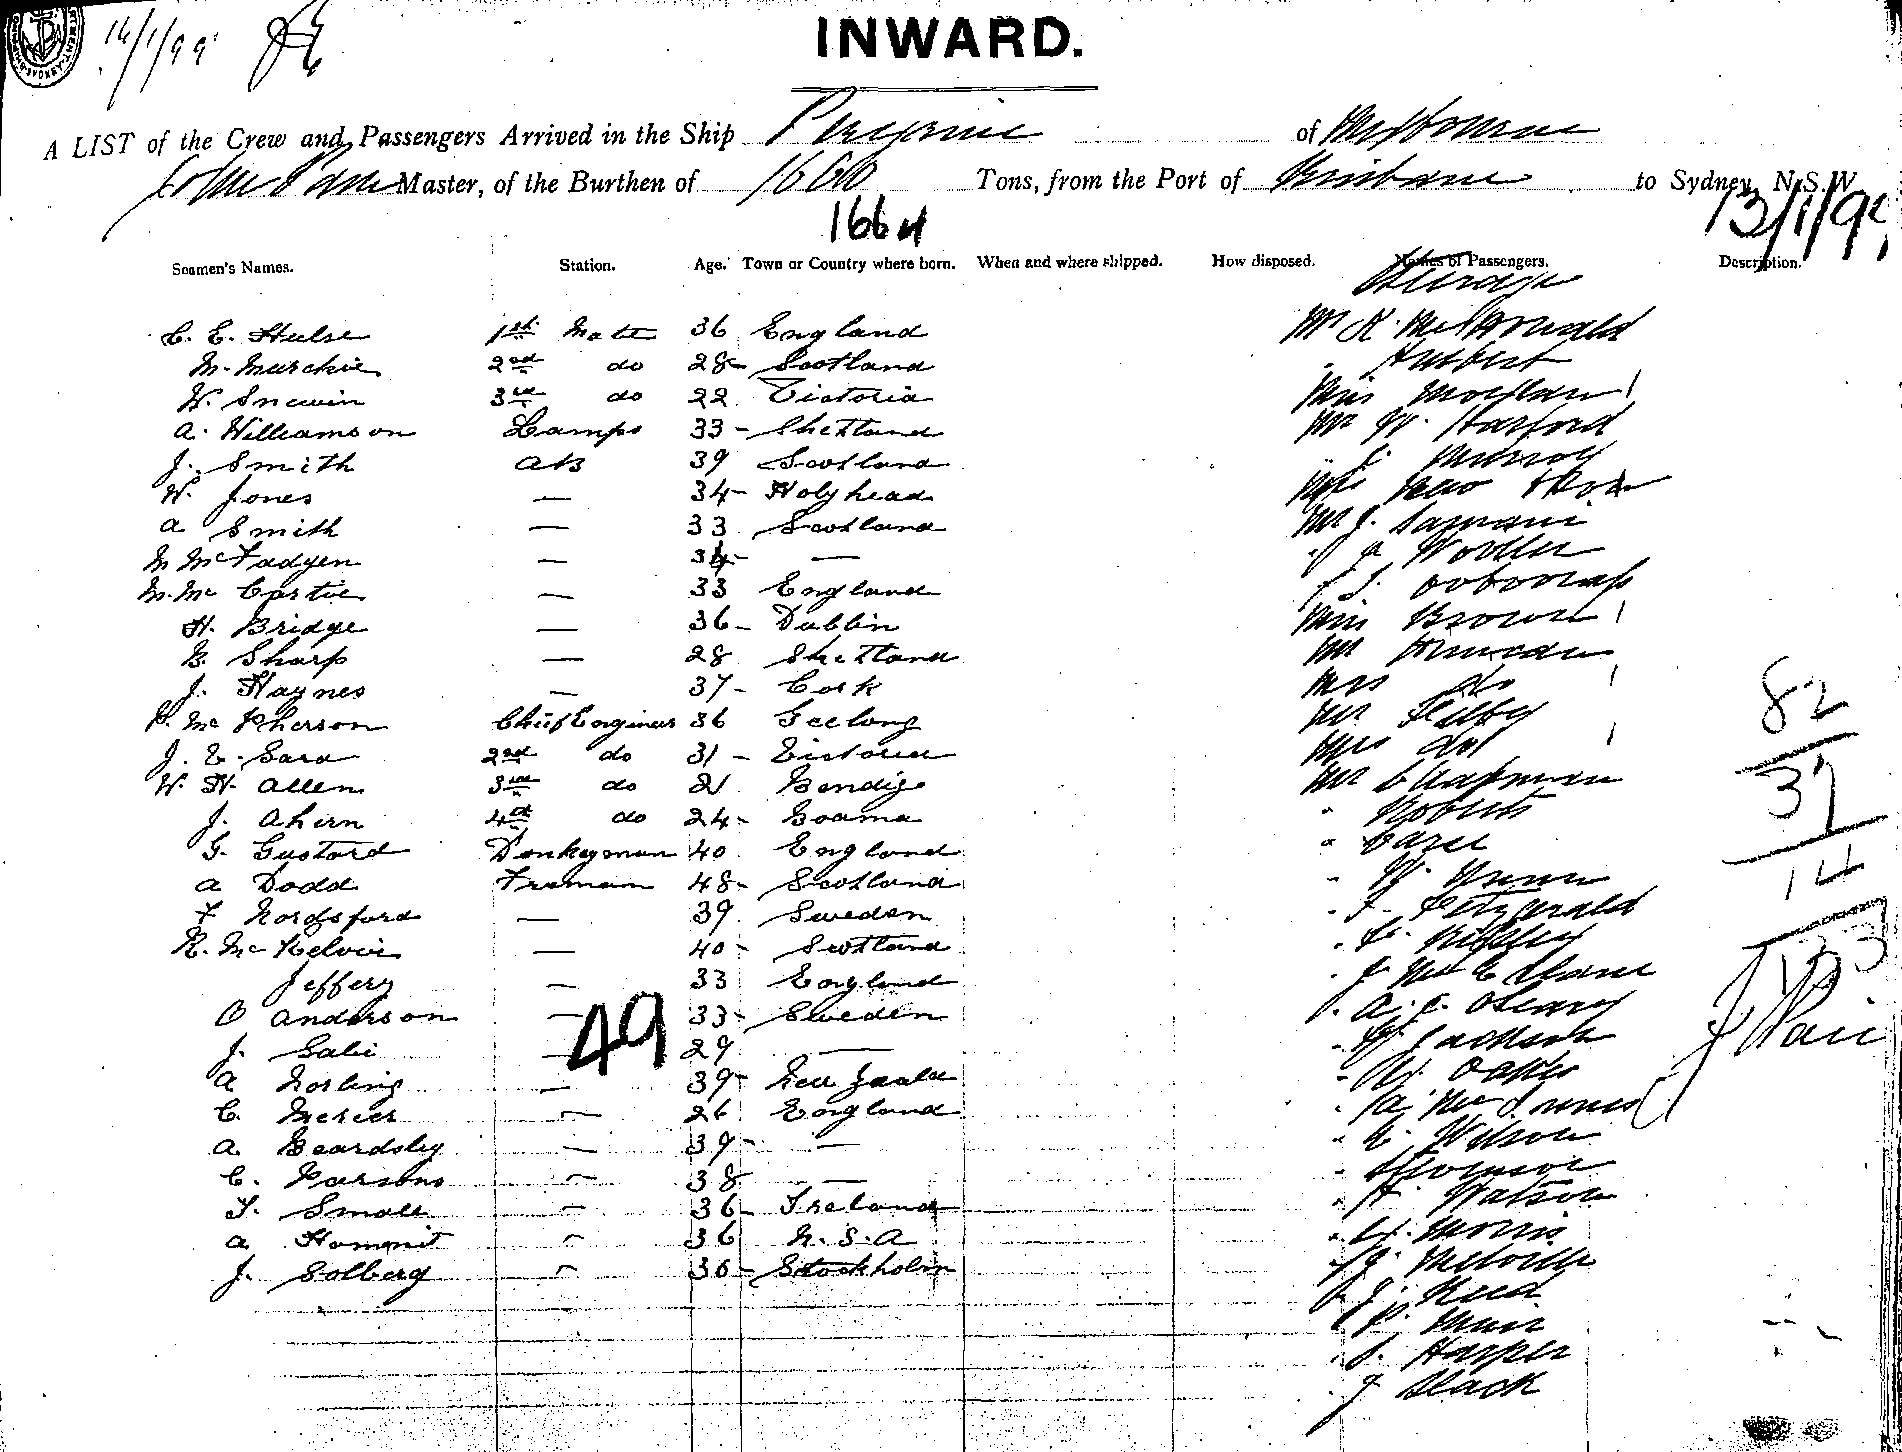 16/1/99
INWARD.
A LIST of the Crew and Passengers Arrived in the Ship Peregrine of Melbourne
Master, of the Burthen of 1660 Tons, from the Port of Brisbane to Sydney, N.S.W
1664 13/1/99
Seamen's Names. Station. Age. Town or Country where born. When and where shipped. How disposed. Names of Passengers. Description.
Steerage
C. E. Hulse 1st Mate 36 England Mr K. McDonald
M. Murchie 2nd do 28 Scotland " Hubert
W. Snewin 3rd do 22 Victoria Miss
A. Williamson Lamps 33 Shetland Mr W. Harford
J. Smith AB 39 Scotland "
W. Jones — 34 Holyhead
A Smith — 33 Scotland Mr J.
M McFadyen — 34 —
M. Mc Cartie — 33 England
H. Bridge — 36 Dublin Miss Brown 1
B. Sharp — 28 Shetland Mr Duncan
J. Haynes — 37 Cork Mrs do 1
P. Mc Pherson Chief Engineer 36 Geelong Mr
J. E. Sara 2nd do 31 Victoria Mrs do 1
W. H. Allen 3rd do 21 Bendigo Mr Chapman
J. Ahern 4th do 24 " Roberts
G. Gustard Donkeyman 40 England "
A Dodd Fireman 48 Scotland "
F Nordsford — 39 Sweden " F. Fitzgerald
R. Mc Kelvie — 40 Scotland "
Jeffery — 33 England "
O Anderson — 33 Sweden " A. E. O'Leary
J. — 29 — " Jackson
A Norling — 39 New Zeald " Oakes
C. Mercer — 26 England " A. McInnes
A Beardsley — 39 — " Wilson
C. Parsons — 38 — "
T. Small — 36 Ireland " Watson
A — 36 U.S.A " Morris
J. Solberg — 36 Stockholm " Melville
" J. Reed
" P. Muir
" J. Harper
" J Slack
49
82
37
14
133